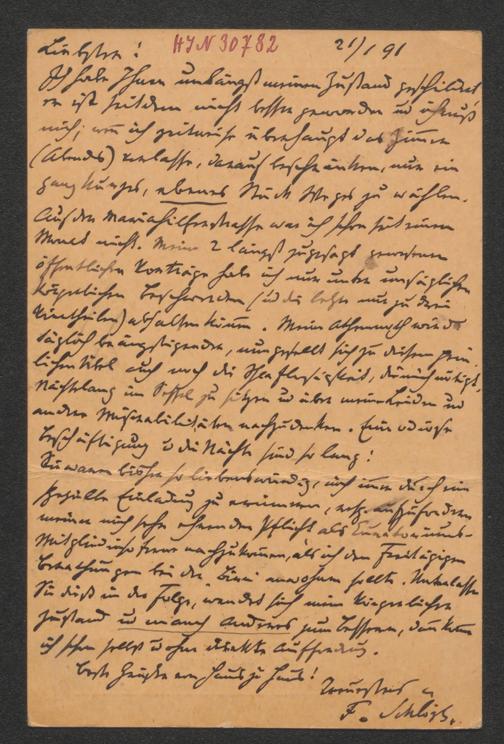 Liebster! HIN 30782 21/1 91
Ich habe Ihnen unlängst meinen Zustand geschildert
er ist seitdem nicht besser geworden u ich muß
mich, wenn ich zeitweise überhaupt das Zimmer
(Abends) verlasse, darauf beschränken, nur ein
ganz kurzes, ebenes Stück Weges zu wählen.
Auf der Mariahilferstrasse war ich schon seit einem
Monat nicht. Meine 2 längst zugesagt gewesenen
öffentlichen Vorträge habe ich nur unter unsäglichen
körperlichen Beschwerden, (u die letzte nur zu drei
Viertheilen) abhalten können. Meine Athemnoth wird
täglich beängstigender, nun gesellt sich zu diesem pein-
lichen Übel auch noch die Schlaflosigkeit, die mich nötigt,
Nächtelang im Sessel zu sitzen u über mein Leiden und
andere Miserabilitäten nachzudenken. Eine
Beschäftigung u die Nächte sind so lang!
Sie waren bisher so liebenswürdig, mich immer durch eine
Einladung zu erinnern, resp. aufzufordern
meiner mich sehr ehrenden Pflicht als
Mitglied nachzukommen, als ich den Freitägigen
Berathungen bei der anwohnen sollte. Unterlassen
Sie dieß in der Folge, wendet sich mein körperlicher
Zustand u manch Anderes zum Besseren, dann komme
ich schon selbst u ohne direkte Aufforderung.
Beste Grüße von Haus zu Haus!
F. Schlögl.